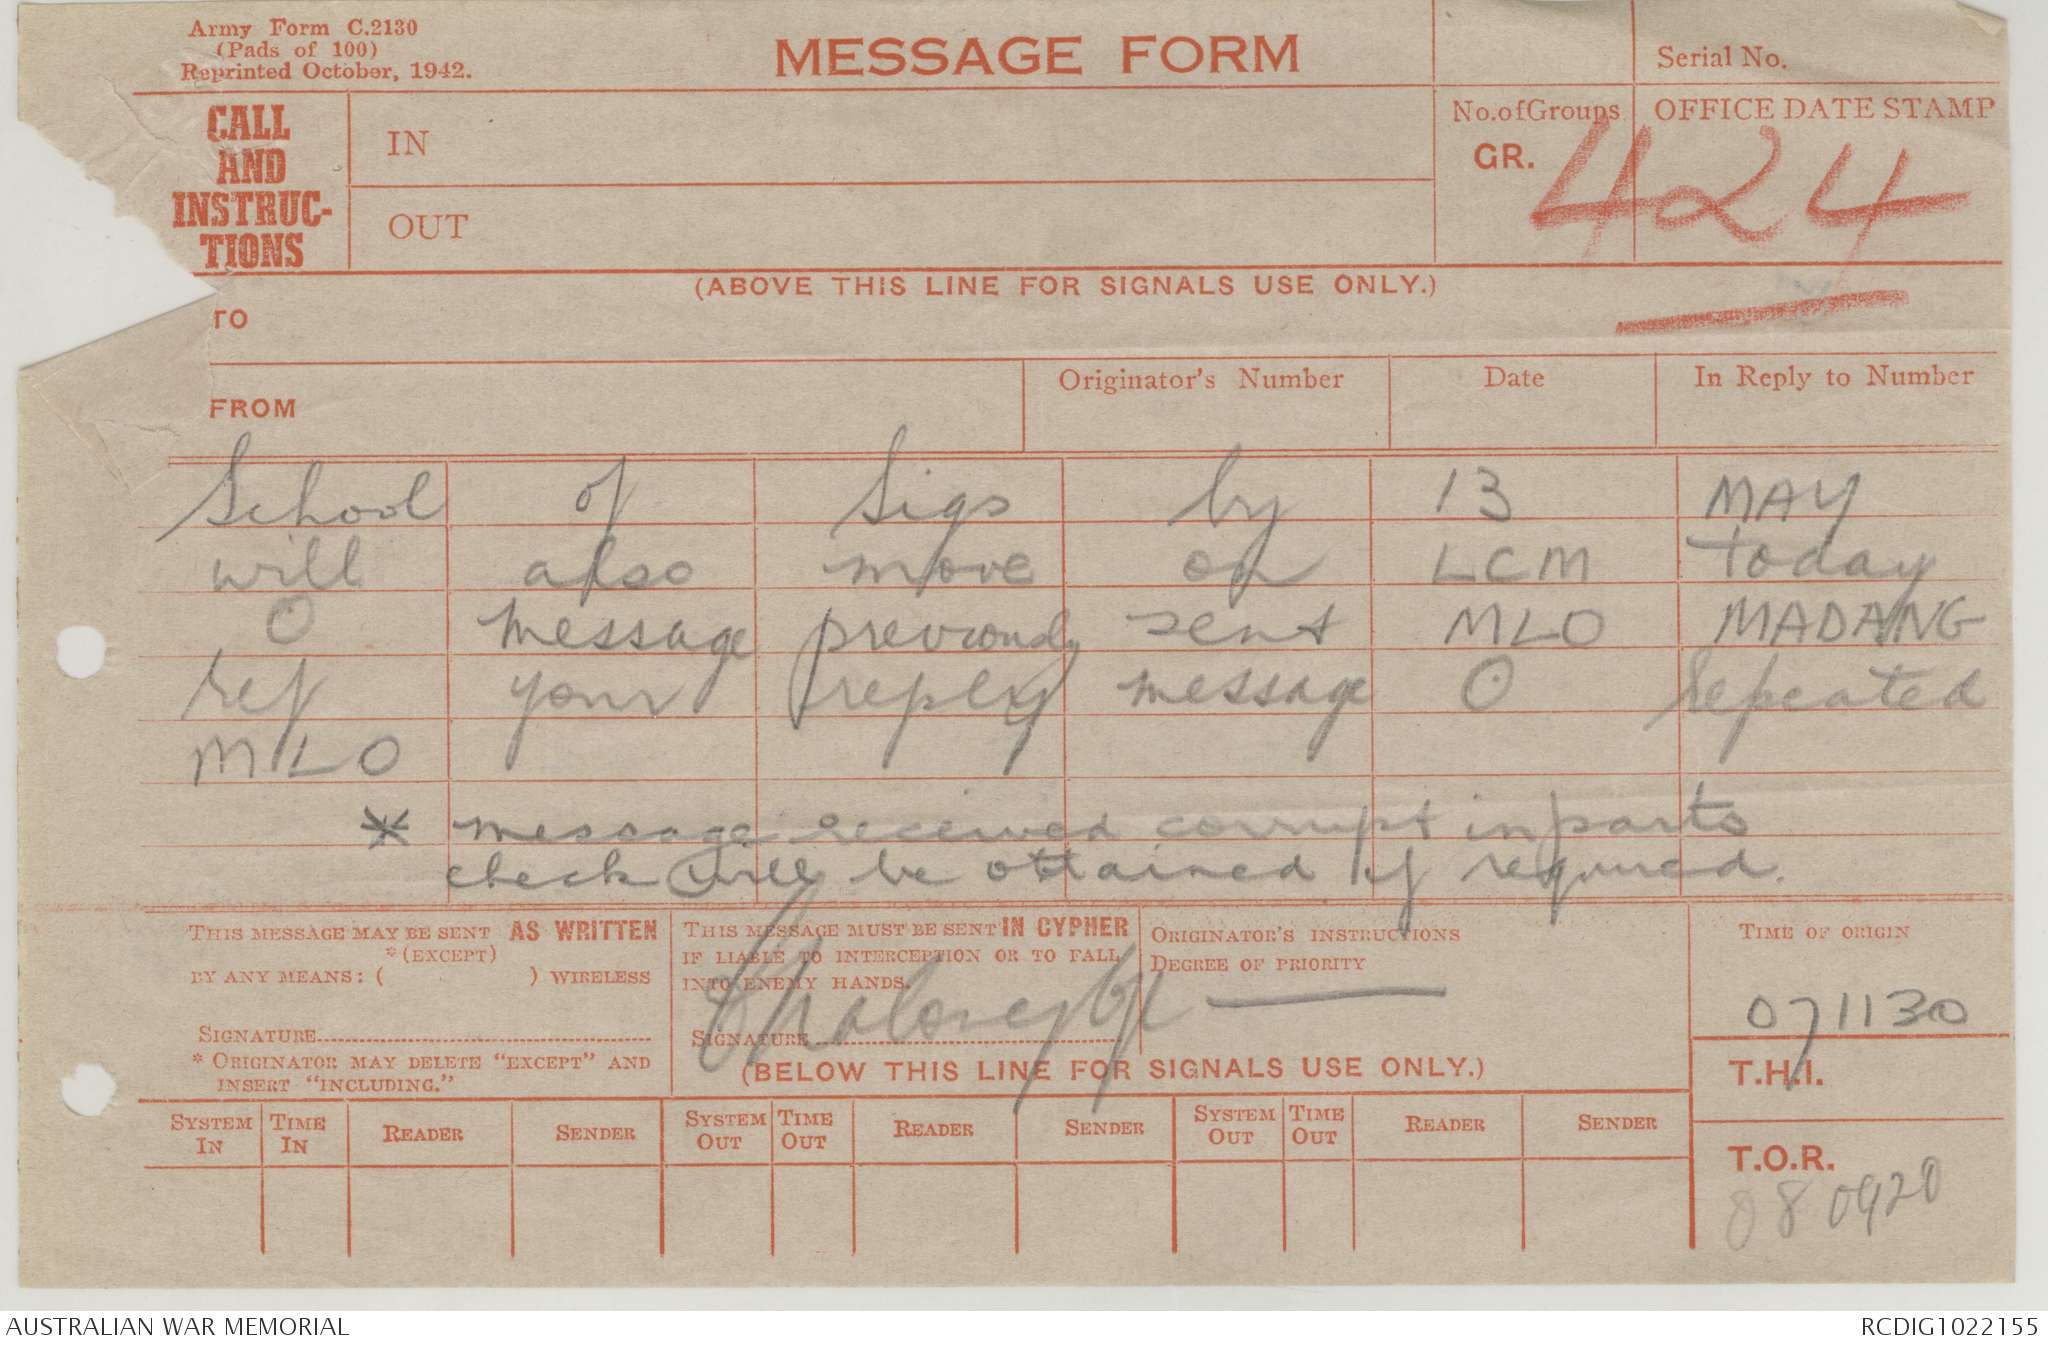 Army Form C.2130
(Pads of 100)
Reprinted October, 1942.
MESSAGE FORM
Serial No.
CALL AND INSTRUC-TIONS
IN
OUT
No. of Groups
GR.
OFFICE DATE STAMP
424
(ABOVE THIS LINE FOR SIGNALS USE ONLY.)
TO
FROM
Originator's Number
Date
In Reply to Number
School of Sigs by 13 MAY
will also move on LCM today
O message previously sent MLO MADANG
ref your reply message O repeated
MLO
* message received corrupt in parts
check will be obtained if required.
THIS MESSAGE MAY BE SENT AS WRITTEN
*(EXCEPT)
BY ANY MEANS: ( ) WIRELESS
SIGNATURE
* ORIGINATOR MAY DELETE "EXCEPT" AND
INSERT "INCLUDING."
THIS MESSAGE MUST BE SENT IN CYPHER
IF LIABLE TO INTERCEPTION OR TO FALL
INTO ENEMY HANDS.
SIGNATURE
ORIGINATOR'S INSTRUCTIONS
DEGREE OF PRIORITY
TIME OF ORIGIN
071130
(BELOW THIS LINE FOR SIGNALS USE ONLY.)
T.H.I.
SYSTEM IN TIME IN READER SENDER SYSTEM OUT TIME OUT READER SENDER SYSTEM OUT TIME OUT READER SENDER
T.O.R.
080920
AUSTRALIAN WAR MEMORIAL
RCDIG1022155